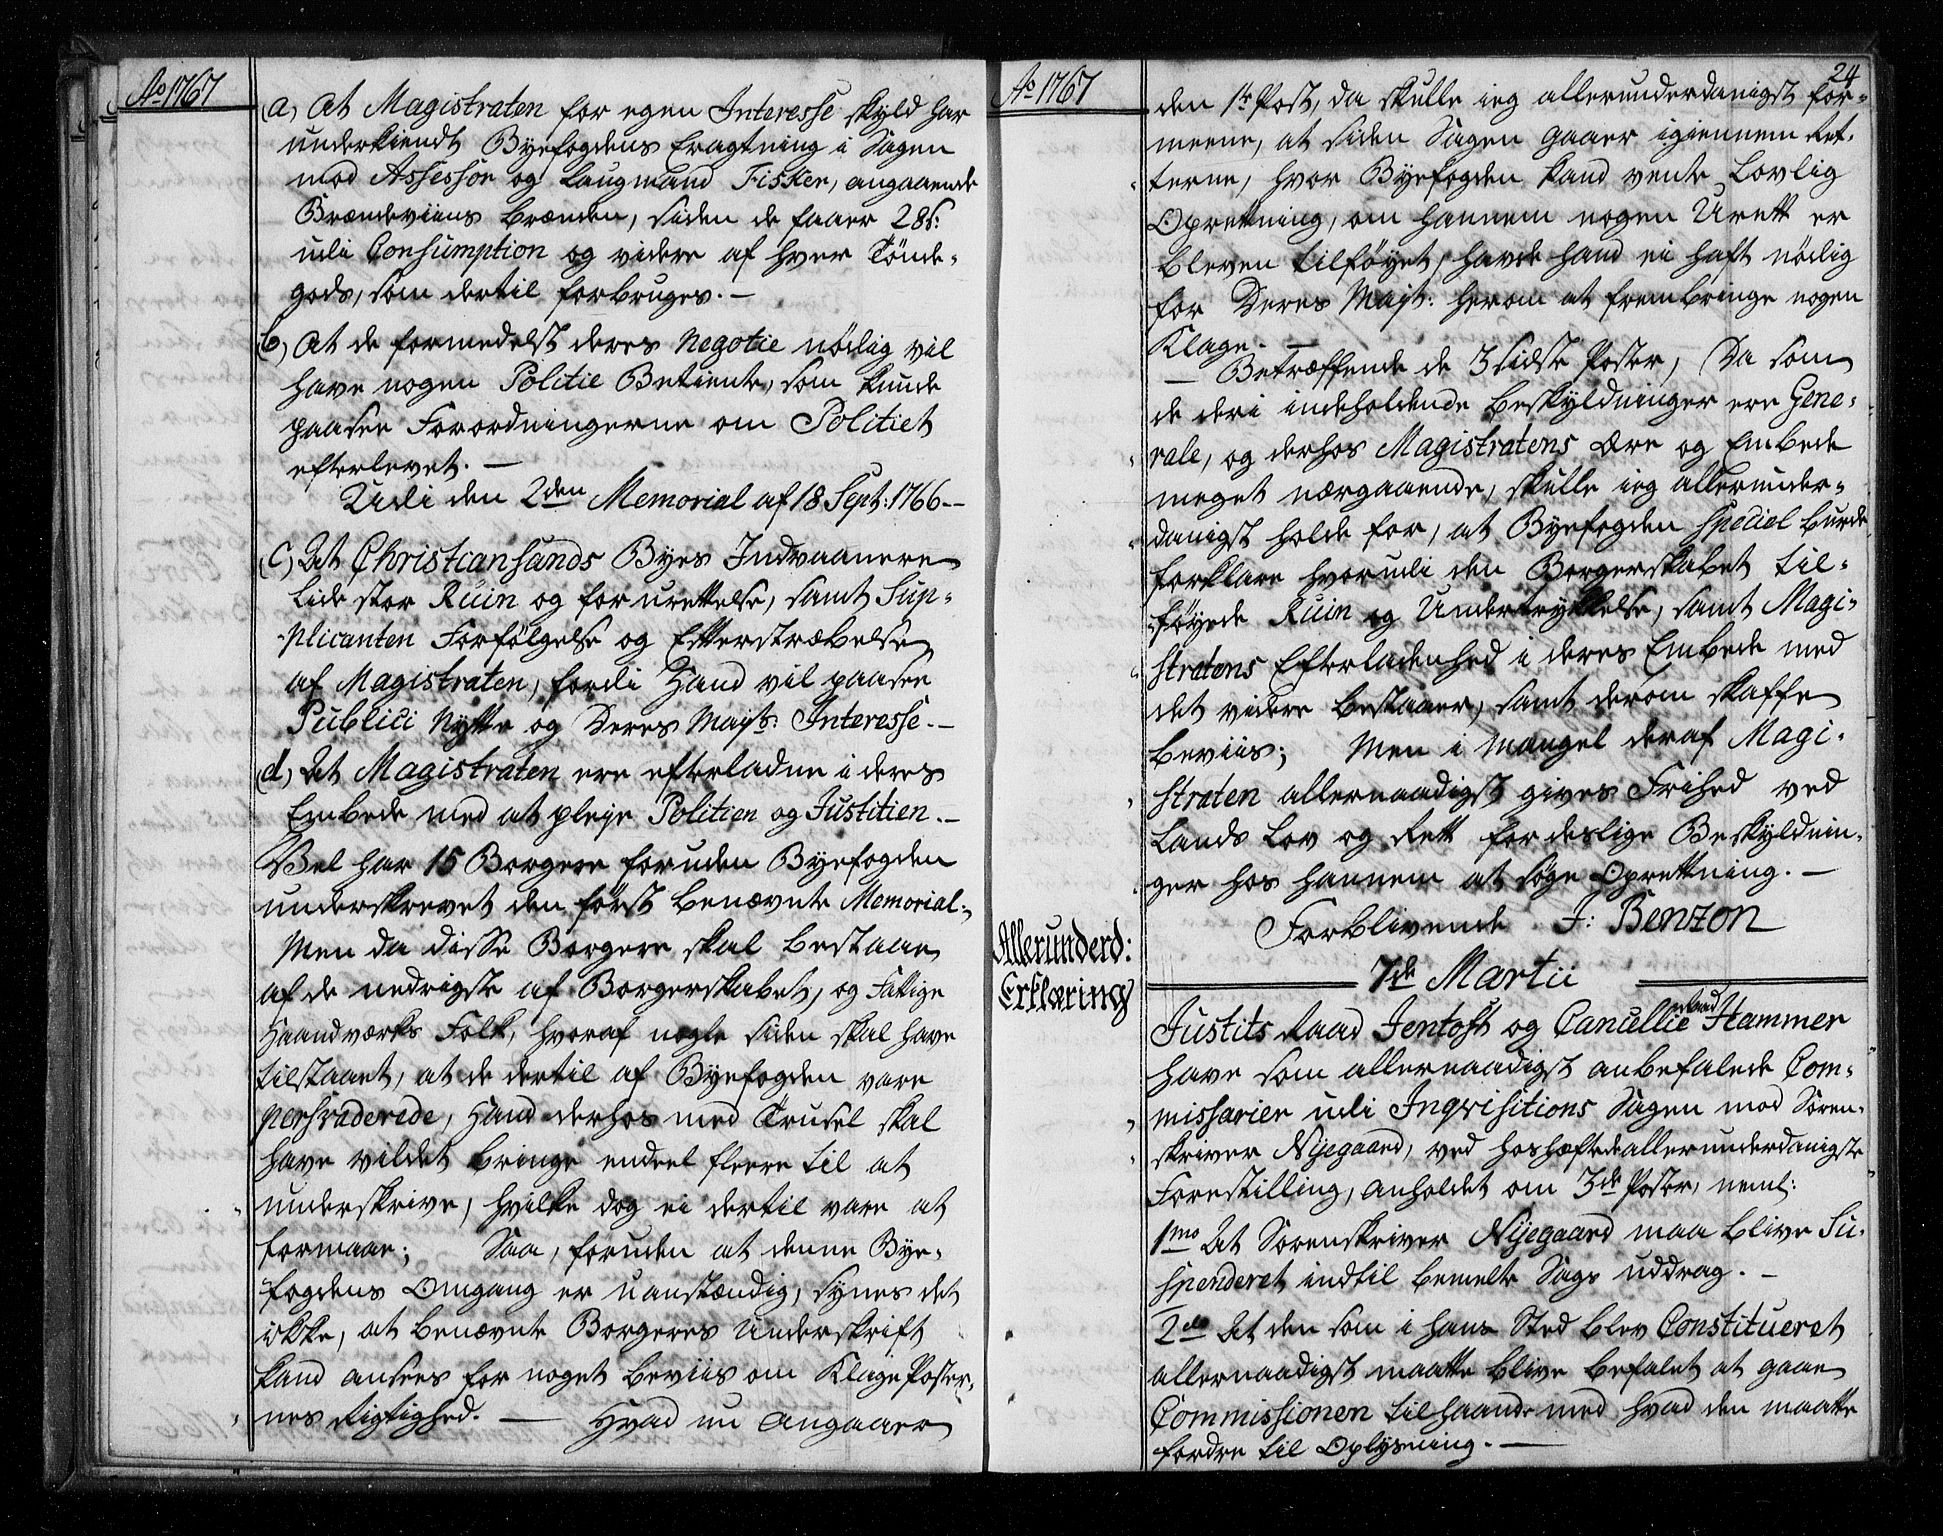 Ao 1767
(a, At Magistraten for egen Interesse skyld har
underkiendt Byefogdens Eragtning i Sagen
mod Assessor og Laugmand Fisker, angaaende
Brændeviins Brænden, siden de faaer 28 s:
udi Consumption og videre af hver Tönde-
gods, som dertil forbruges. —
(b, At de formedelst deres Negotie nödig vil
have nogen Politie Betiente, som kunde
paasee Forordningerne om Politiet
efterlevet. —
Udi den 2den Memorial af 18 Sept: 1766 —
(c, At Christiansands Byes Indvaanere
Lide stor Ruin og forurettelse, samt Sup-
plicanten Forfölgelse og Efterstræbelse
af Magistraten, fordi Hand vil paasee
Publici Nytte og Deres Mayts: Interesse. —
(d, At Magistraten ere efterladne i deres
Embede med at pleje Politien og Justitien. —
Vel har 15 Borgere foruden Byefogden
underskrevet den först benævnte Memorial,
Men da disse Borgere skal bestaae
af de nedrigste af Borgerskabet, og Fattige
Haandværks Folk, hvoraf nogle siden skal have
tilstaaet, at de dertil af Byefogden vare
persvaderede, Hand derhos med Trusel skal
have vildet bringe endeel fleere til at
underskrive, hvilke dog ei dertil vare at
formaae; Saa, foruden at denne Bye-
fogdens Omgang er uanstændig, synes det
ikke, at benævnte Borgeres Underskrift
kand ansees for noget beviis om Klage Poster-
nes Rigtighed. — Hvad nu angaaer
Ao 1767
24
den 1te Post, da skulle ieg allerunderdanigst for-
meene, at siden Sagen gaaer igiennem Ret-
terne, hvor Byefogden kand vente Lovlig
Oprettning, om hannem nogen Urett er
bleven tilföyet, havde hand ei haft nödig
for Deres Mayt: herom at frembringe nogen
Klage. —
— Betræffende de 3 sidste Poster, Da som
de deri indeholdende beskyldninger ere Gene-
rale, og derhos Magistratens Ære og Embede
meget nærgaaende, skulle ieg allerunder-
danigst holde for, at Byefogden speciel burde
forklare hvorudi den Borgerskabet til-
föyede Ruin og Undertrykkelse, samt Magi-
stratens Efterladenhed i deres Embede med
det videre bestaaer, samt derom skaffe
beviis; Men i mangel deraf Magi-
straten allernaadigst gives Frihed ved
Lands Lov og Rett for deslige Beskyldnin-
ger hos hannem at söge Oprettning. —
Forblivende J: Benzon
7de Martii
Allerunderd:
Erklæring
Justits Raad Jentoft og Cancellie Raad Hammer
have som allernaadigst anbefalede Com-
missarier udi Inqvisitions Sagen mod Soren-
skriver Nÿegaard, ved hoshæftede allerunderdanigste
Forestilling, anholdet om 3de Poster, neml:
1mo At Sorenskriver Nÿegaard maa blive Su-
spenderet indtil bemelte Sags uddrag. —
2do At den som i hans Sted blev Constitueret
allernaadigst maatte blive befalet at gaae
Commissionen tilhaande med hvad den maatte
fordre til Oplysning. —